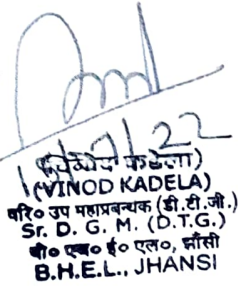 22
(VINOD KADELA)
वरि० उप महाप्रबन्धक (डी.टी.जी.)
Sr. D. G. M. (D.T.G.)
बी० एच० ई० एल०, झाँसी
B.H.E.L., JHANSI